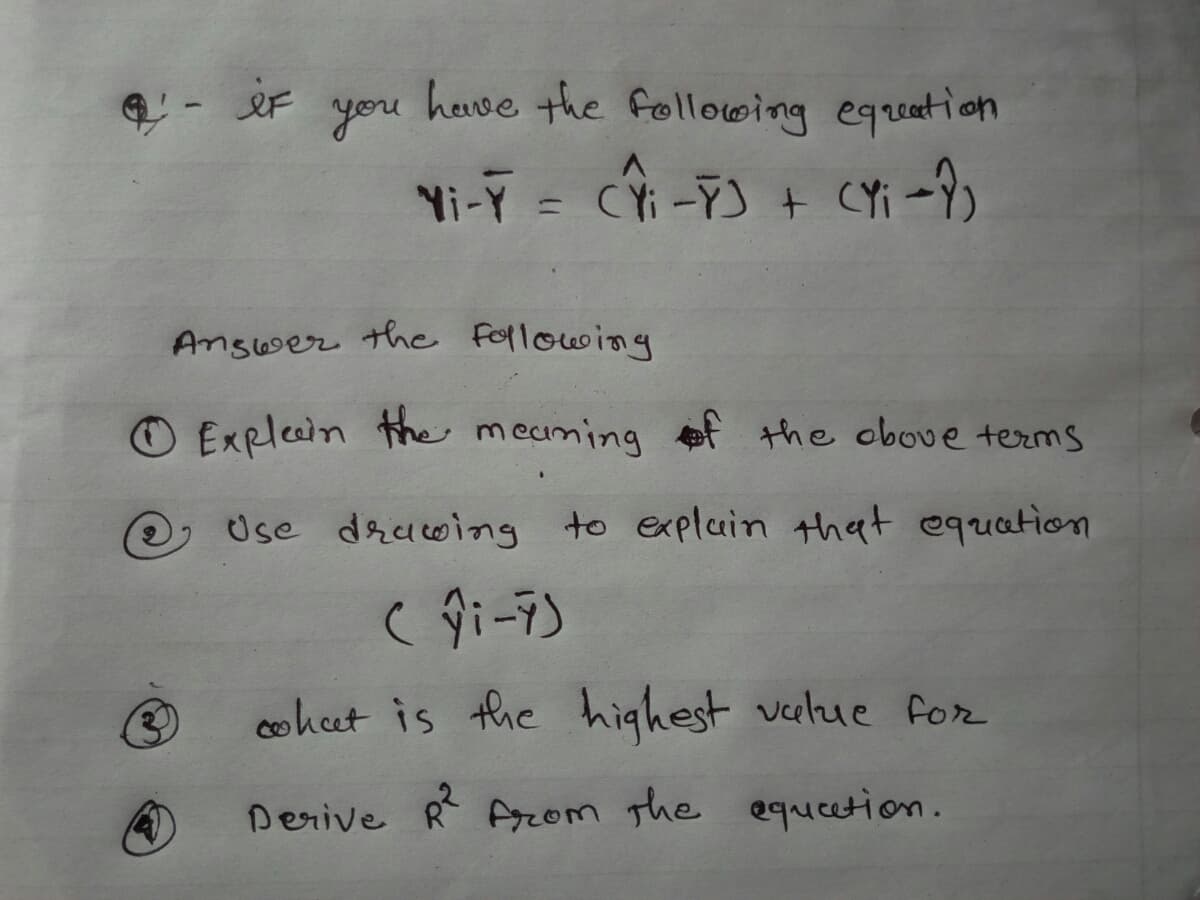 Q:- if you have the following equation
Yi-Ȳ = (Ŷi -Ȳ) + (Yi -Ŷ)
Answer the following
① Explain the meaning of the above terms
②, Use drawing to explain that equation
( Ŷi-Ȳ)
③ what is the highest value for
④ Derive R² from the equation.